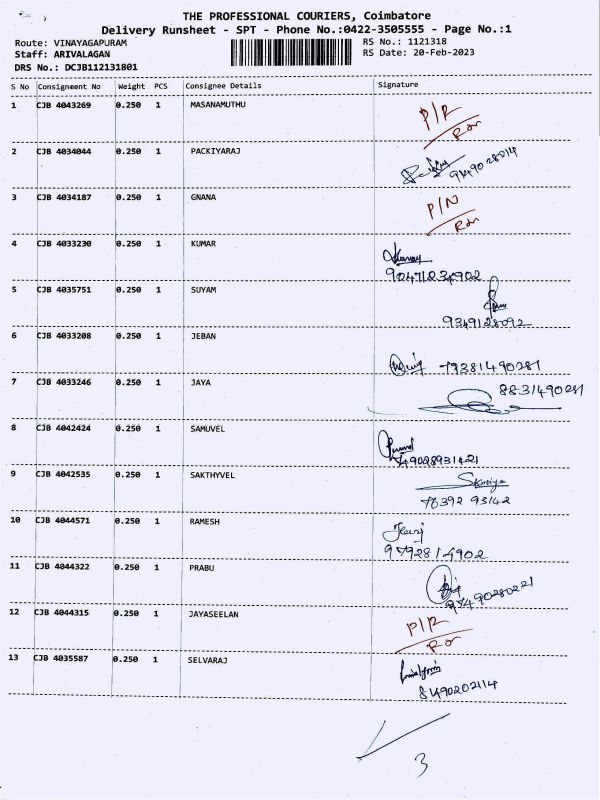 THE PROFESSIONAL COURIERS, Coimbatore
Delivery Runsheet - SPT - Phone No.:0422-3505555 - Page No.:1
Route: VINAYAGAPURAM RS No.: 1121318
Staff: ARIVALAGAN RS Date: 20-Feb-2023
DRS No.: DCJB112131801
S No Consignment No Weight PCS Consignee Details Signature
1 CJB 4043269 0.250 1 MASANAMUTHU P/R
2 CJB 4034044 0.250 1 PACKIYARAJ
9149028014
3 CJB 4034187 0.250 1 GNANA P/N
4 CJB 4033230 0.250 1 KUMAR
90471234902
5 CJB 4035751 0.250 1 SUYAM
9349128092
6 CJB 4033208 0.250 1 JEBAN
79381490281
7 CJB 4033246 0.250 1 JAYA 8831490281
8 CJB 4042424 0.250 1 SAMUVEL
749028931421
9 CJB 4042535 0.250 1 SAKTHYVEL
76392 93142
10 CJB 4044571 0.250 1 RAMESH
9792814902
11 CJB 4044322 0.250 1 PRABU
97490280221
12 CJB 4044315 0.250 1 JAYASEELAN P/R
13 CJB 4035587 0.250 1 SELVARAJ
81490202114
3